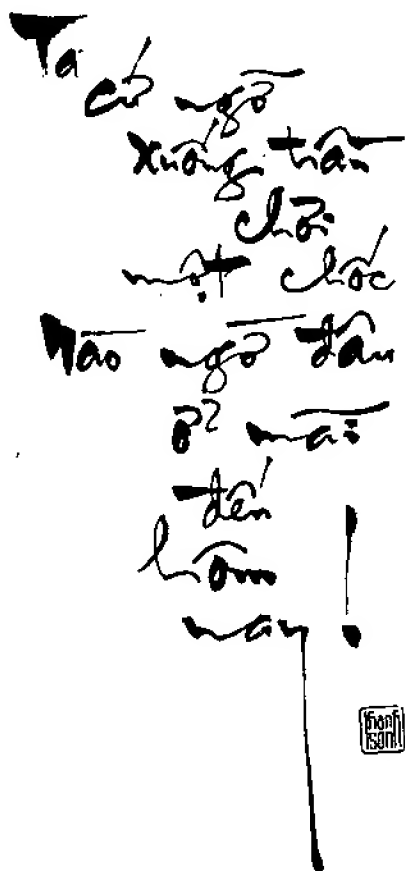 Ta
cứ ngỡ
xuống trần
chơi
một chốc
Nào ngờ đâu
ở mãi
đến
hôm
nay!
thanh
sơn